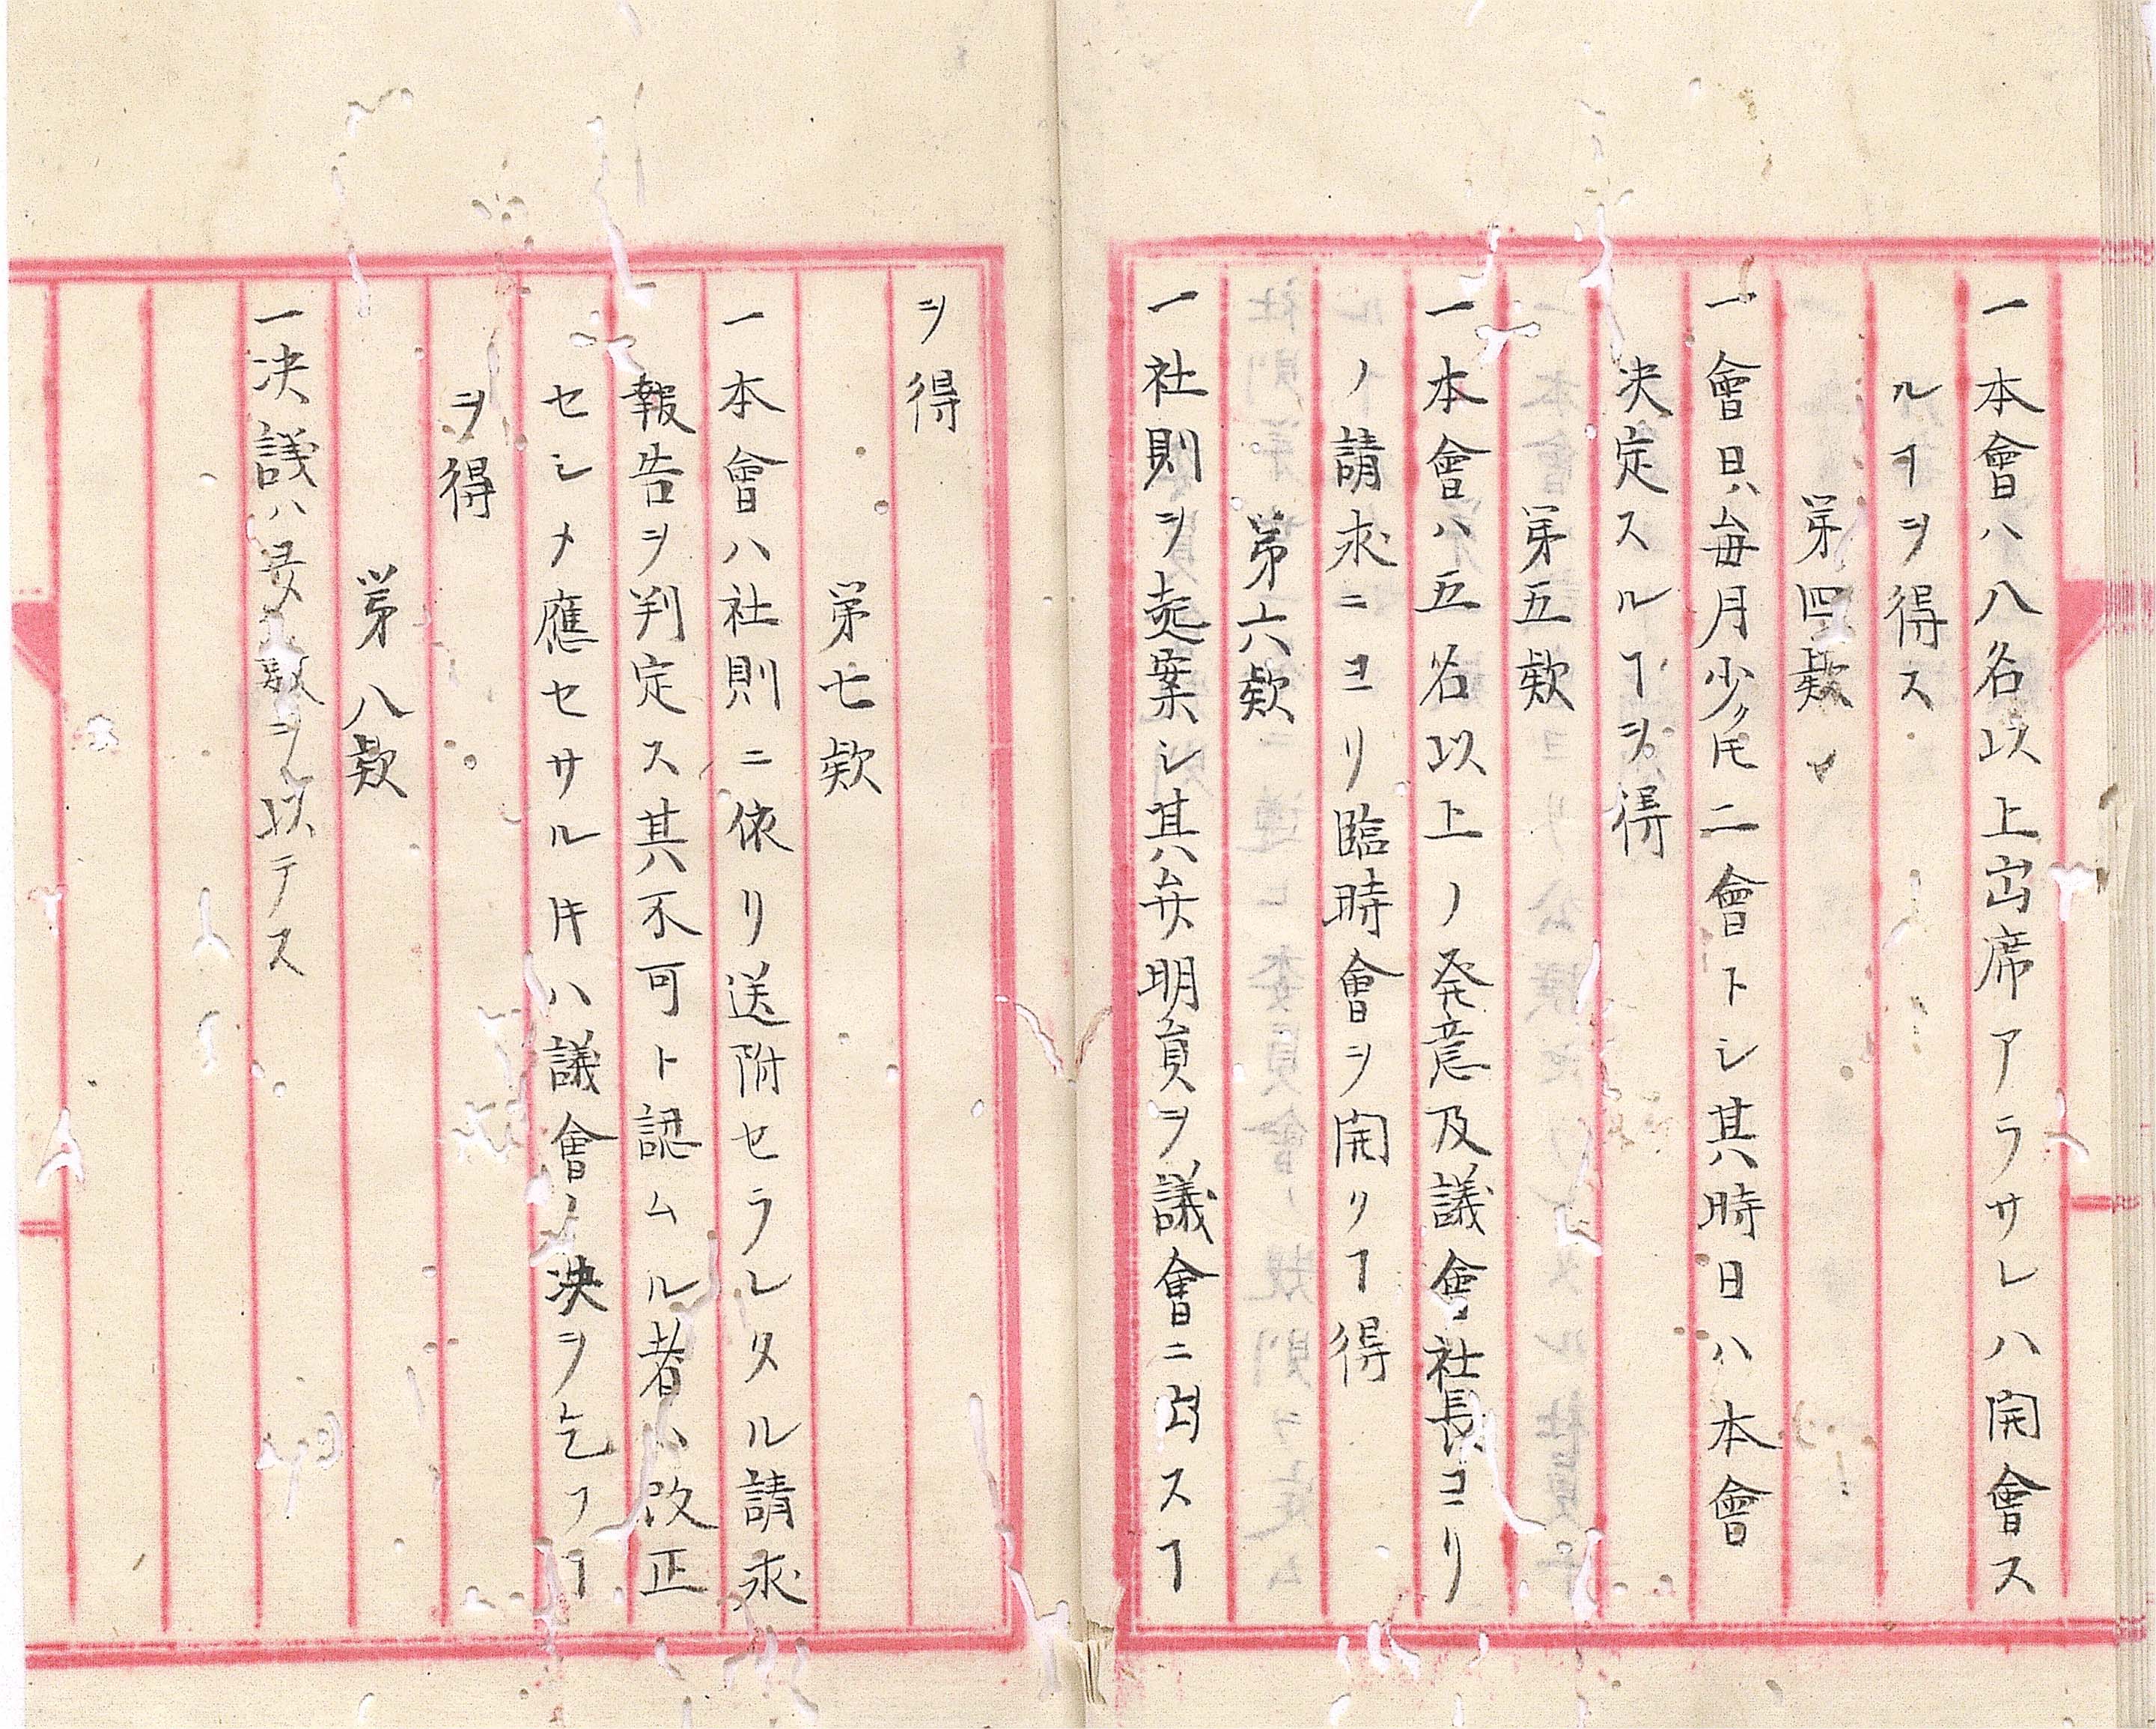 一本會ハ八名以上出席アラサレハ開會ス
ルヿヲ得ス
第四款
一會日ハ毎月少クモ二會トシ其時日ハ本會
决定スルヿヲ得
第五款
一本會ハ五名以上ノ発意及議會社長ヨリ
ノ請求ニヨリ臨時會ヲ開クヿ得
第六款
一社則ヲ起案シ其弁明員ヲ議會ニ出スヿ
ヲ得
第七款
一本會ハ社則ニ依リ送附セラレタル請求
報告ヲ判定ス其不可ト認ムル者ハ改正
セシメ應セサル𪜈ハ議會ノ决ヲ乞フヿ
ヲ得
第八款
一决議ハ最多數ヲ以テス